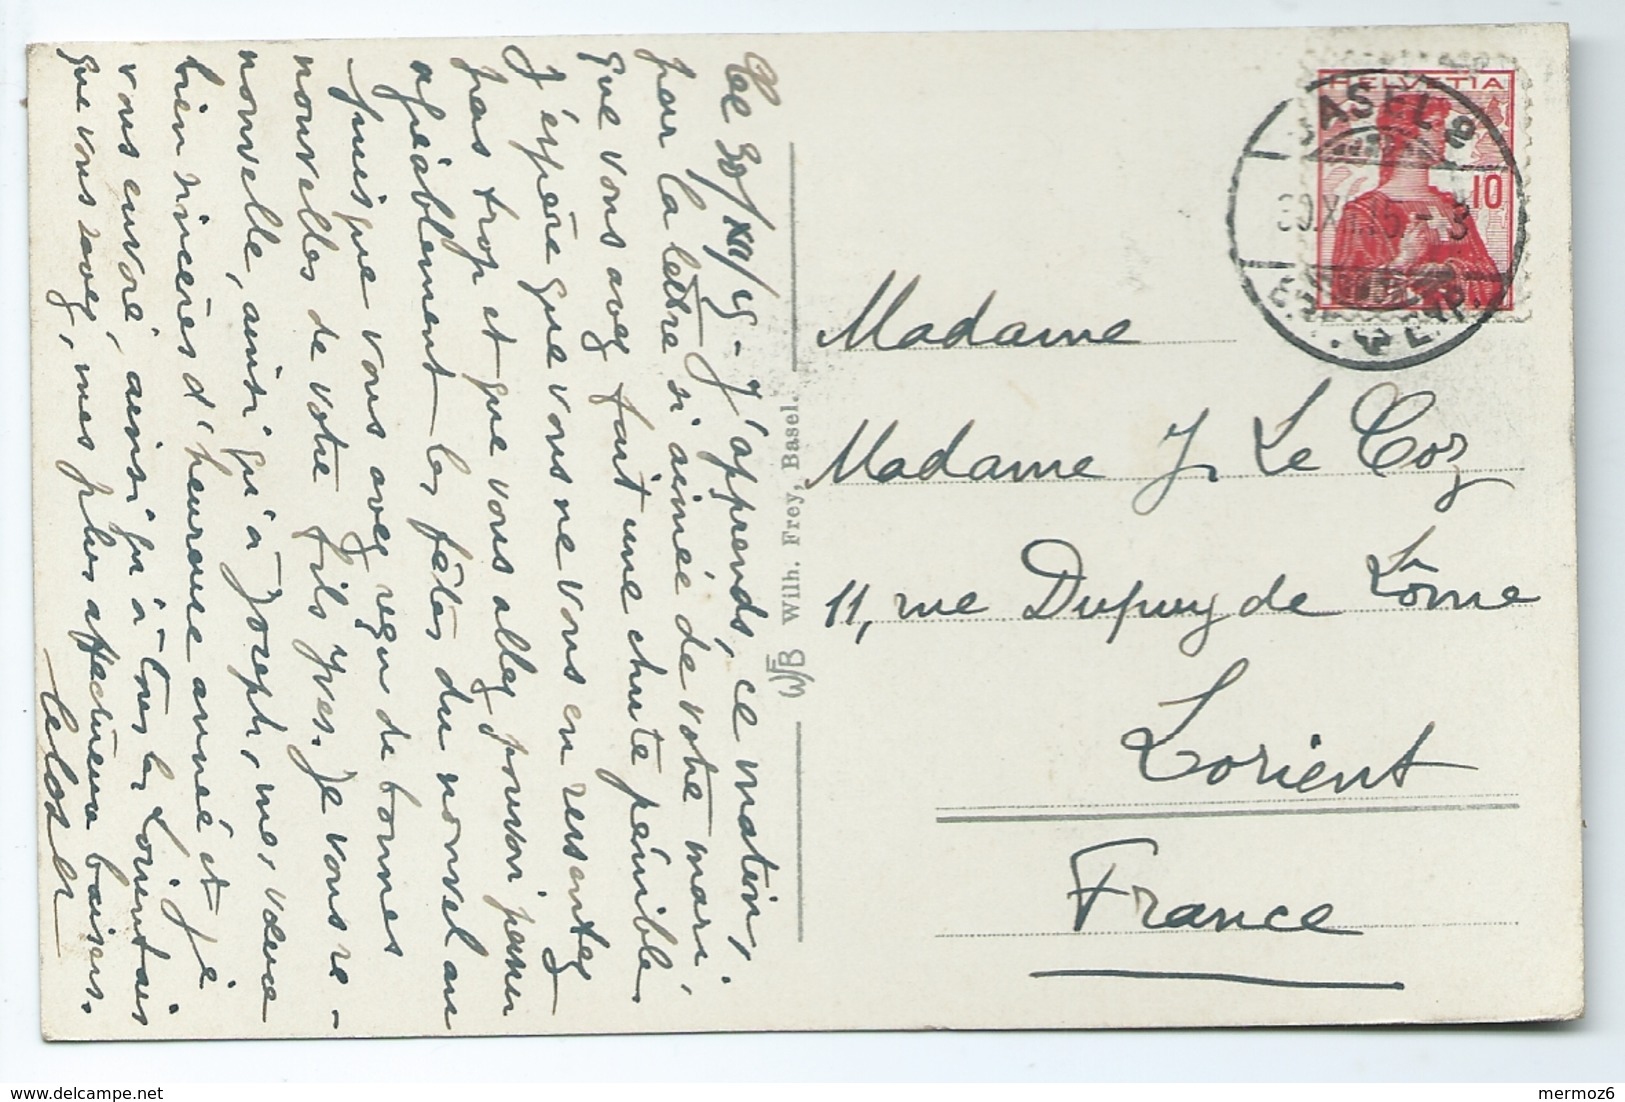 Ce 30/XII/15 - J'apprends, ce matin,
par la lettre si aimée de votre mari,
que vous avez fait une chute pénible.
J'espère que vous ne vous en ressentez
pas trop et que vous allez pouvoir passer
agréablement les fêtes du nouvel an
puisque vous avez reçu de bonnes
nouvelles de votre fils Yves. Je vous re-
nouvelle, ainsi qu'à Joseph, mes vœux
bien sincères d'heureuse année et je
vous envoie, ainsi qu'à tous les Lorientais
que vous savez, mes plus affectueux baisers.
Wilh. Frey, Basel.
WFB
HELVETIA
10
BASEL 2
30.XII.15 - 3
BR. EXP.
Madame
Madame J. Le Coz
11, rue Dupuy de Lôme
Lorient
France
mermoz6